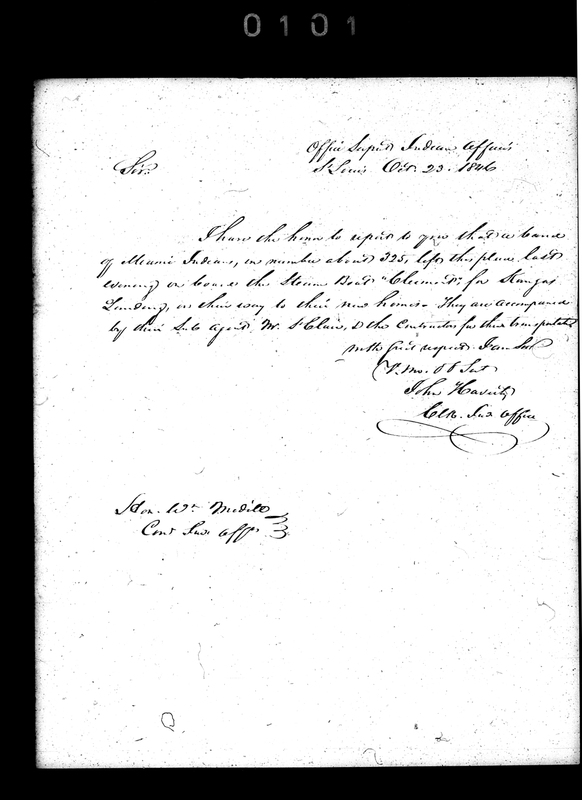 0101
Office Supt Indian Affairs
St Louis Oct. 23. 1846
Sir:
I have the honor to report to you that a band
of Miami Indians, in number about 325, left this place last
evening on board the Steam Boat "Clermont" for Kanzas
Landing, on their way to their new homes. They are accompanied
by their Sub Agent Mr. St Clair, & the Contractors for their transportation
with great respect I am Sir
Yr. Mo. Ob Sert
John Haverty
Clk. Ind Office
Hon. Wm Medill
Comr Ind Affs